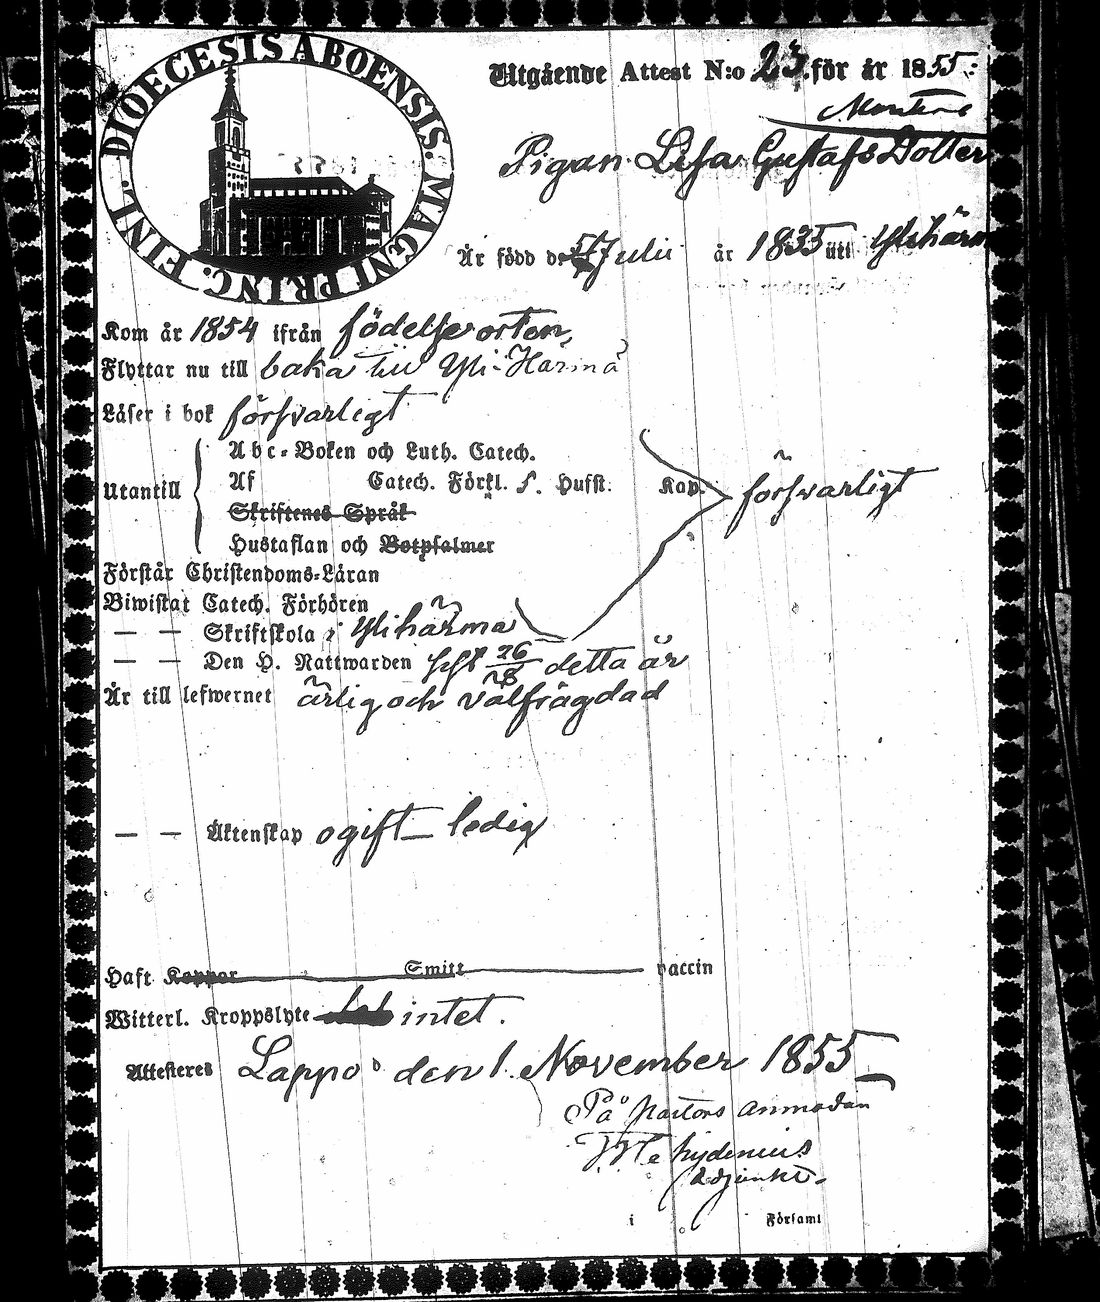 DIOECESIS ABOENSIS. MAGNI PRINC. FINL.
Utgående Attest N:o 23. för år 1855:
Pigan Lisa Gustafs Dotter
Är född d. Julii år 1835 uti Ylihärm
Kom år 1854 ifrån födelseorten,
Flyttar nu till baka till Yli-Härmä
Läser i bok försvarligt
Utantill Abc-Boken och Luth. Catech.
Af Catech. Förkl. S. Husst. Kap. försvarligt
Skriftenes Språk
Hustaflan och Botpsalmer
Förstår Christendoms-Läran
Biwistat Catech. Förhören
— — Skriftskola i Ylihärmä
— — Den H. Nattwarden sist 26/8 detta år
Är till lefwernet ärlig och välfrägdad
— — Äktenskap ogift – ledig
Haft Koppor Smitt vaccin
Witterl. Kroppslyte intet.
Attesteres Lappo den 1. November 1855
På Pastors anmodan
Nydenius
Adjunkt.
i Församl